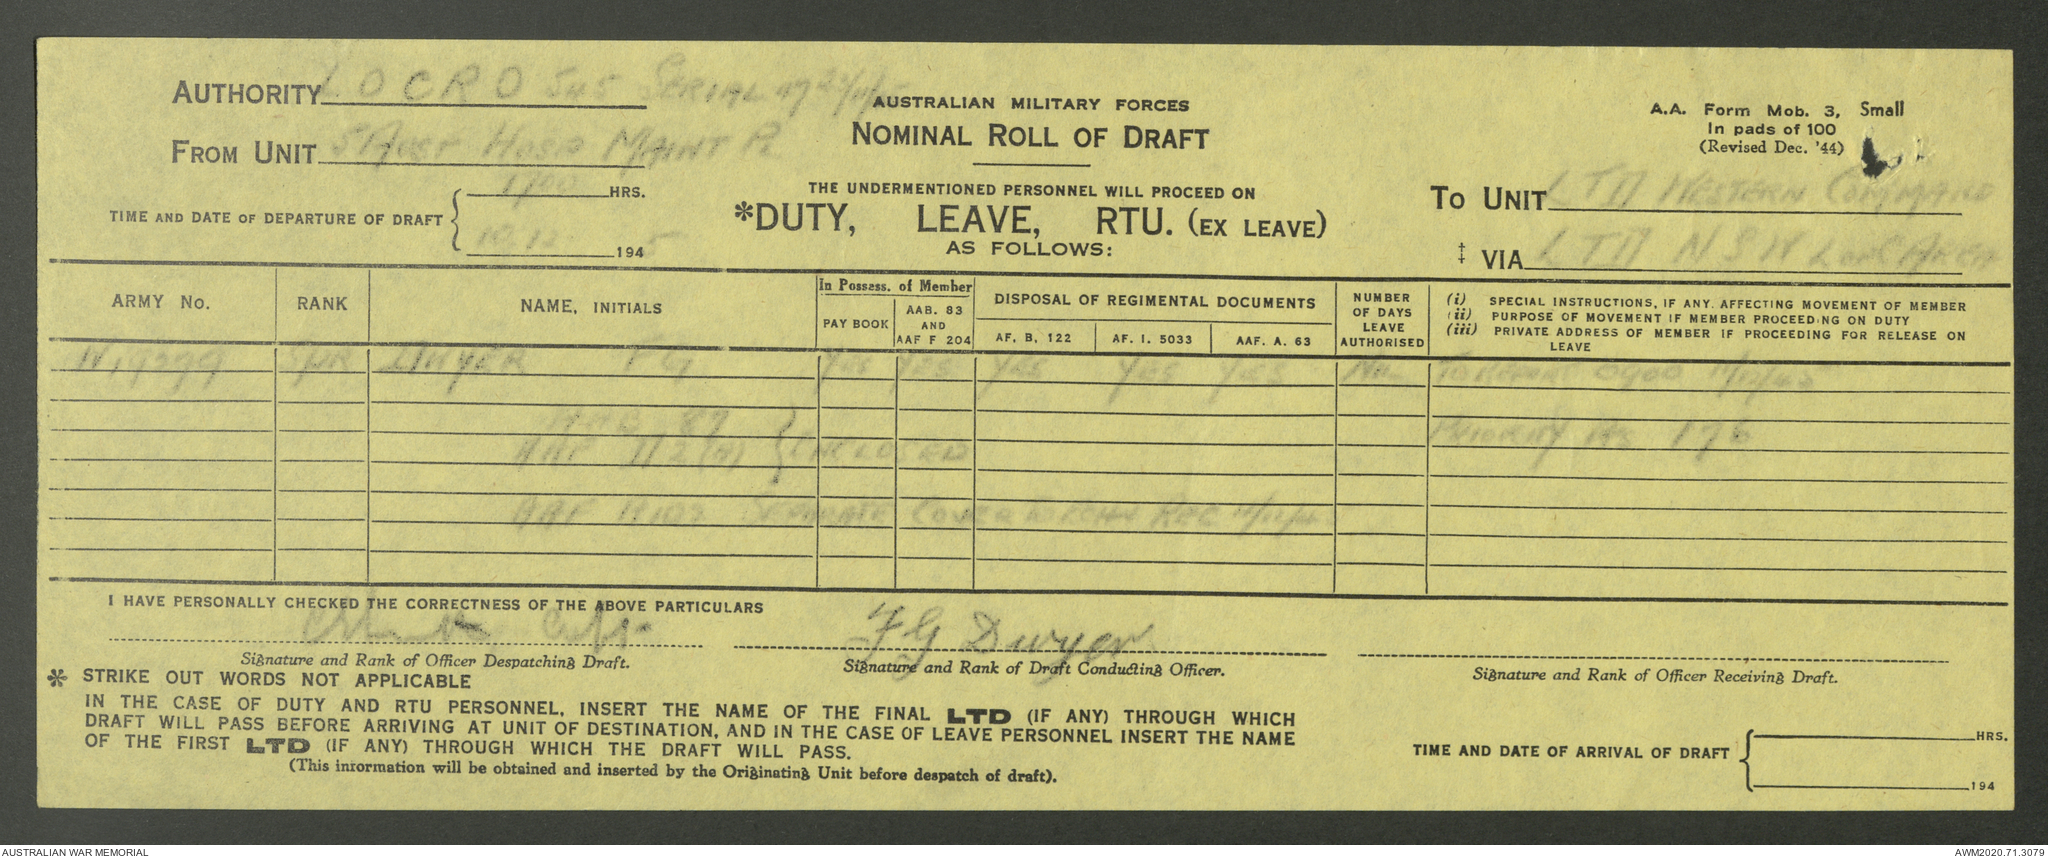 AUTHORITY LOCRO 545 SERIAL
FROM UNIT 5 AUST HOSP MAINT PL
TIME AND DATE OF DEPARTURE OF DRAFT 1700 HRS.
10.12 1945
AUSTRALIAN MILITARY FORCES
NOMINAL ROLL OF DRAFT
THE UNDERMENTIONED PERSONNEL WILL PROCEED ON
*DUTY, LEAVE, RTU. (EX LEAVE)
AS FOLLOWS:
A.A. Form Mob. 3, Small
In pads of 100
(Revised Dec. '44)
TO UNIT LTD WESTERN COMMAND
‡ VIA LTD NSW L of C AREA
ARMY No. RANK NAME, INITIALS
In Possess. of Member
PAY BOOK
AAB. 83
AND
AAF F 204
DISPOSAL OF REGIMENTAL DOCUMENTS
AF. B. 122 AF. I. 5033 AAF. A. 63
NUMBER
OF DAYS
LEAVE
AUTHORISED
(i) SPECIAL INSTRUCTIONS, IF ANY, AFFECTING MOVEMENT OF MEMBER
(ii) PURPOSE OF MOVEMENT IF MEMBER PROCEEDING ON DUTY
(iii) PRIVATE ADDRESS OF MEMBER IF PROCEEDING FOR RELEASE ON
LEAVE
SPR DWYER FG YES YES YES YES YES NIL TO REPORT 0900
AAB 87
AAF ENCLOSED
PRIORITY 176
AAF SEPARATE COVER TO REC
I HAVE PERSONALLY CHECKED THE CORRECTNESS OF THE ABOVE PARTICULARS
Signature and Rank of Officer Despatching Draft.
FG Dwyer
Signature and Rank of Draft Conducting Officer.
Signature and Rank of Officer Receiving Draft.
* STRIKE OUT WORDS NOT APPLICABLE
IN THE CASE OF DUTY AND RTU PERSONNEL, INSERT THE NAME OF THE FINAL LTD (IF ANY) THROUGH WHICH
DRAFT WILL PASS BEFORE ARRIVING AT UNIT OF DESTINATION, AND IN THE CASE OF LEAVE PERSONNEL INSERT THE NAME
OF THE FIRST LTD (IF ANY) THROUGH WHICH THE DRAFT WILL PASS.
(This information will be obtained and inserted by the Originating Unit before despatch of draft).
TIME AND DATE OF ARRIVAL OF DRAFT HRS.
194
AUSTRALIAN WAR MEMORIAL
AWM2020.71.3079